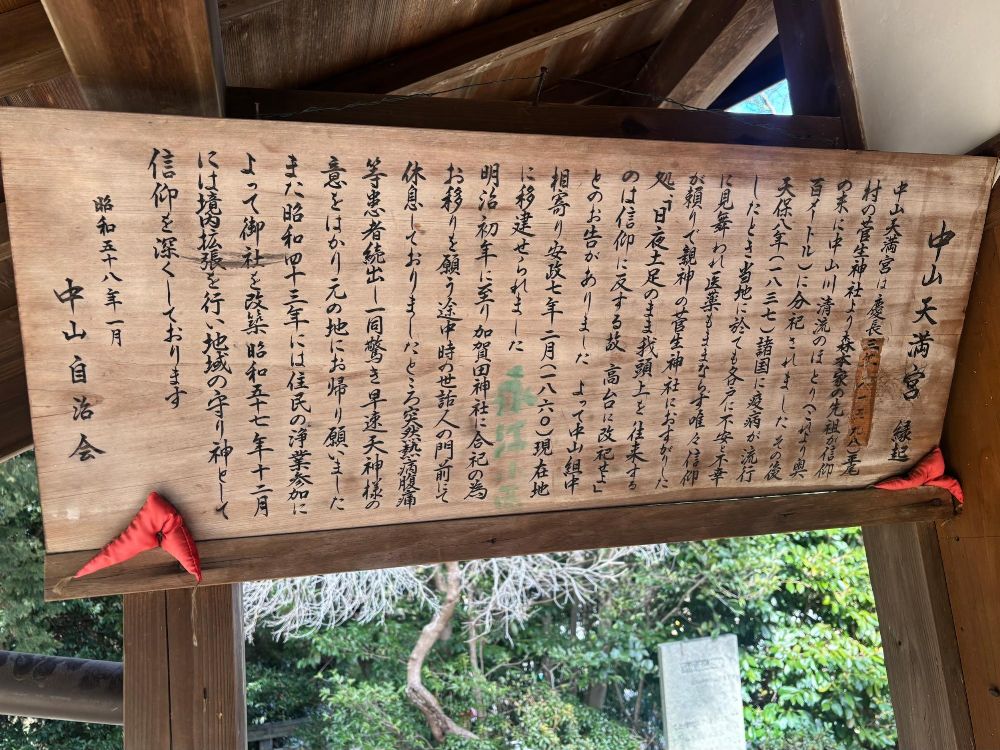 中山天満宮 縁起
中山天満宮は慶長三年(一五九八)三宅
村の菅生神社より森本家の先祖が信仰
の末に中山川清流のほとり(これより奥
百メートル)に分祀されました その後
天保八年(一八三七)諸国に疫病が流行
したとき当地に於ても各戸に不安と不幸
に見舞われ医薬もままならず唯々信仰
が頼りで親神の菅生神社におすがりした
処「日夜土足のまま我頭上を往来する
のは信仰に反する故 高台に改祀せよ」
とのお告がありました よって中山組中
相寄り安政七年二月(一八六〇)現在地
に移建せられました
明治初年に至り加賀田神社に合祀の為
お移りを願う途中時の世話人の門前にて
休息しておりましたところ突然熱病腹痛
等患者続出し一同驚き早速天神様の
意をはかり元の地にお帰り願いました
また昭和四十三年には住民の浄業参加に
よって御社を改築 昭和五十七年十二月
には境内払張を行い地域の守り神として
信仰を深くしております
昭和五十八年一月
中山自治会